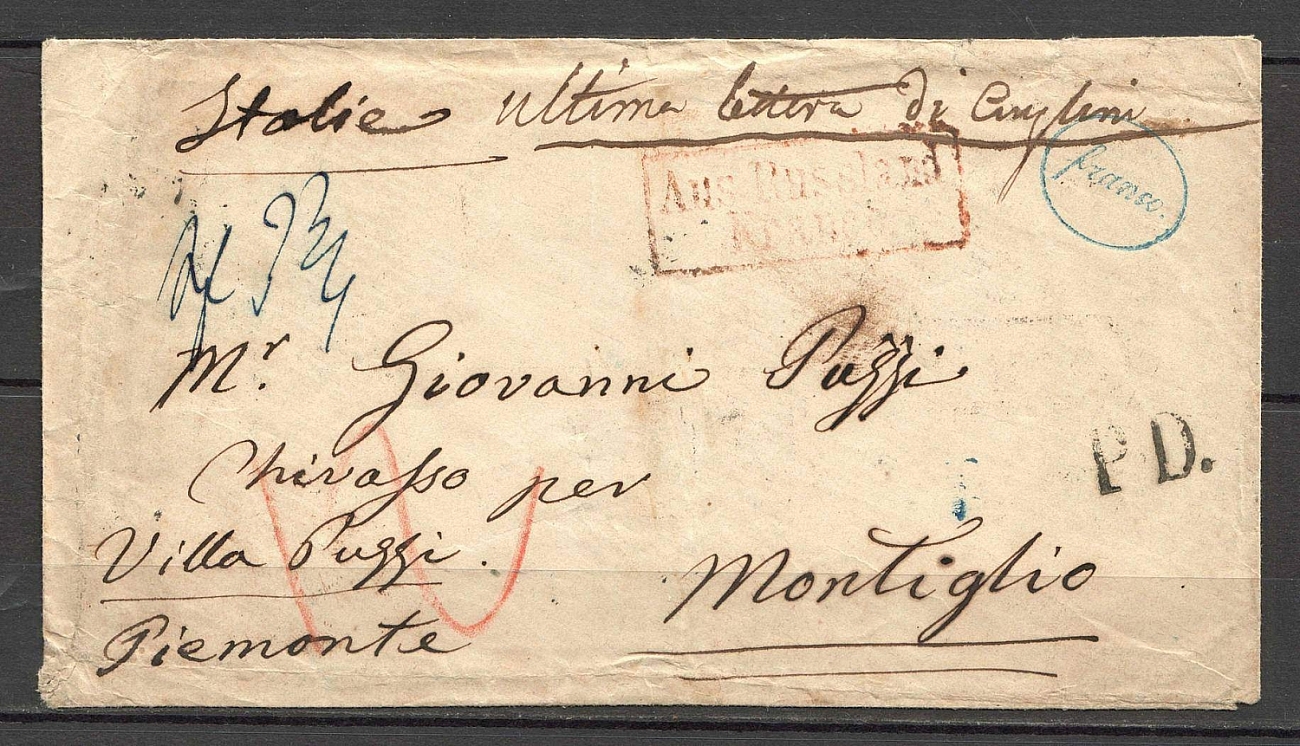 Italie ultima lettera di
Aus Russland
Franco
franco.
Mr. Giovanni Puzzi
Chivasso per
Villa Puzzi.
Montiglio
Piemonte
P.D.